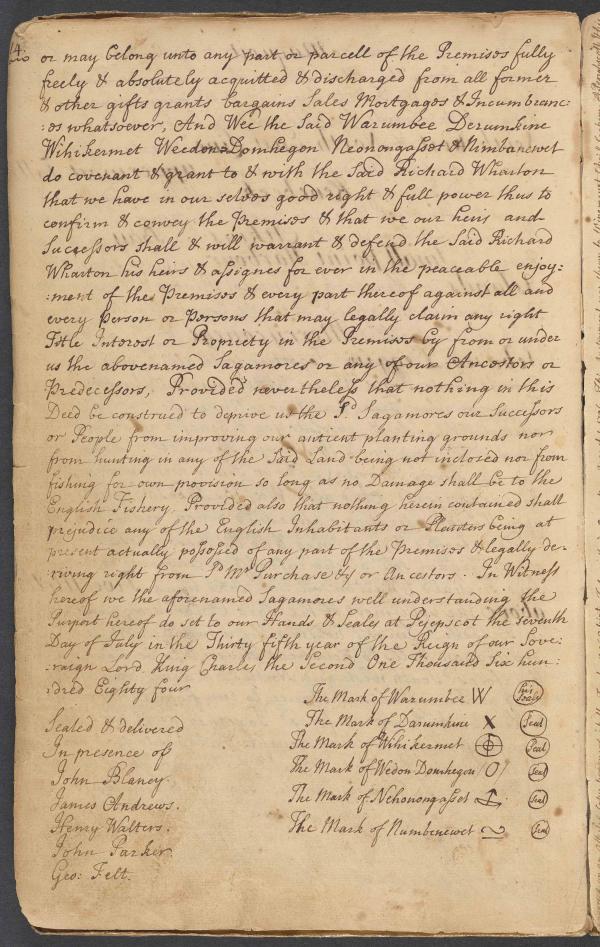 14.
or may belong unto any part or parcell of the Premises fully
freely & absolutely acquitted & discharged from all former
& other gifts grants bargains Sales Mortgages & Incumbranc:
:es whatsoever, And Wee the Said Warumbee Derumkine
Wihikermet Weedon=Domhegon Neonongasset & Nimbanewet
do covenant & grant to & with the Said Richard Wharton
that we have in our selves good right & full power thus to
confirm & convey the Premises & that we our heirs and
Successors shall & will warrant & defend the Said Richard
Wharton his heirs & assignes for ever in the peaceable enjoy:
:ment of the Premises & every part thereof against all and
every Person or Persons that may legally claim any right
Title Interest or Propriety in the Premises by from or under
us the abovenamed Sagamores or any of our Ancestors or
Predecessors, Provided nevertheless that nothing in this
Deed be construed to deprive us the Sd. Sagamores our Successors
or People from improving our antient planting grounds nor
from hunting in any of the Said Land being not inclosed nor from
fishing for own provision so long as no Damage shall be to the
English Fishery, Provided also that nothing herein contained shall
prejudice any of the English Inhabitants or Planters being at
present actually possessed of any part of the Premises & legally de-
riving right from Sd Mr Purchase & or Ancestors. In Witness
hereof we the aforenamed Sagamores well understanding the
Purport hereof do set to our Hands & Seales at Pejepscot the Seventh
Day of July in the Thirty fifth year of the Reign of our Sove:
:raign Lord King Charles the Second One Thousand Six hun:
:dred Eighty four
The Mark of Warumbee W his Seale
Sealed & delivered
The Mark of Darumkine x Seal
In presence of
The Mark of Wihikermet Seal
John Blaney
The Mark of Wedon Domhegon O Seal
James Andrews.
The Mark of Nehonongasset Seal
Henry Walters.
The Mark of Numbenewet Seal
John Parker.
Geo: Felt.